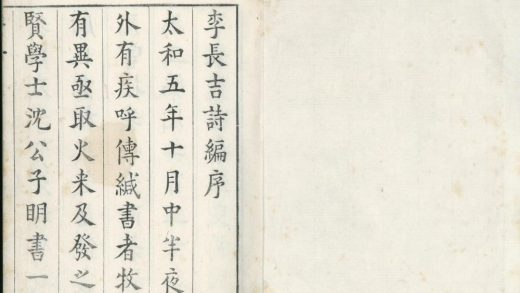 李長吉詩編序
太和五年十月中半夜
外有疾呼傳緘書者牧
有異亟取火来及發之
賢學士沈公子明書一